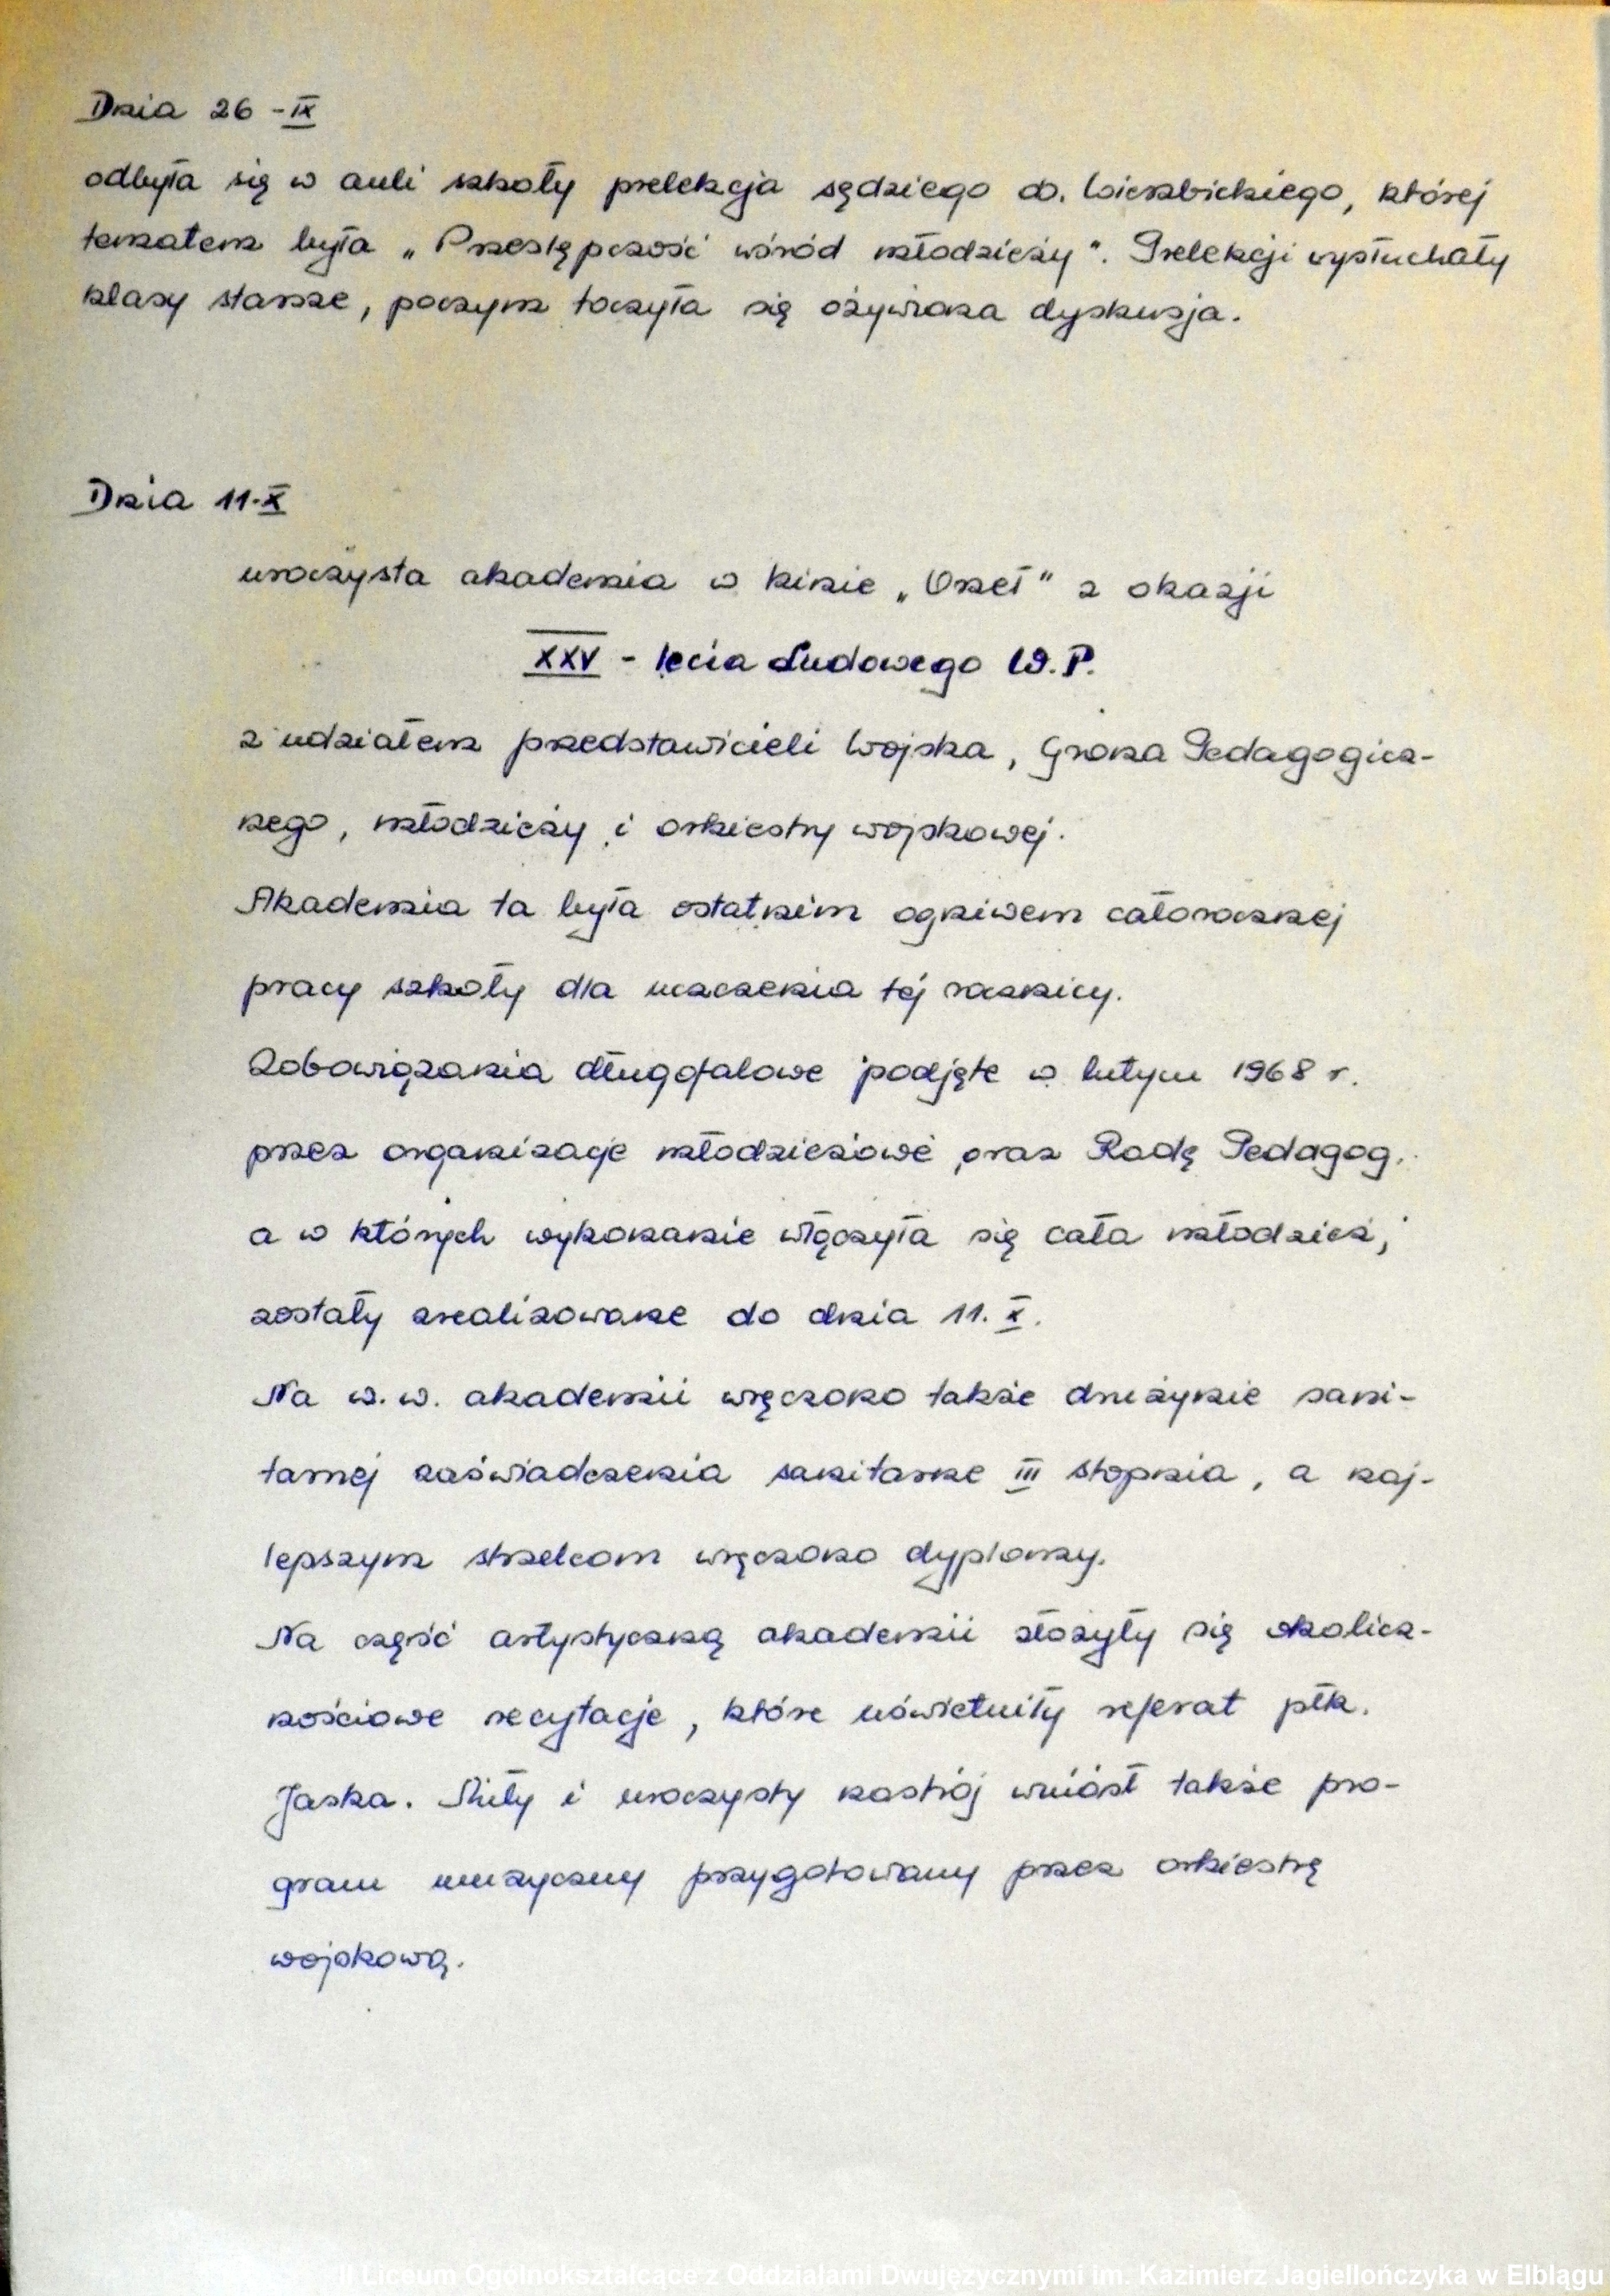 Dnia 26-IX
odbyła się w auli szkoły prelekcja sędziego ob. Wierzbickiego, której
tematem była „Przestępczość wśród młodzieży". Prelekcji wysłuchały
klasy starsze, poczym toczyła się ożywiona dyskusja.
Dnia 11.X
uroczysta akademia w kinie „Orzeł" z okazji
XXV - lecia Ludowego W.P.
z udziałem przedstawicieli Wojska, Grona Pedagogicz-
nego, młodzieży i orkiestry wojskowej.
Akademia ta była ostatnim ogniwem całorocznej
pracy szkoły dla uczczenia tej rocznicy.
Zobowiązania długofalowe podjęte w lutym 1968 r.
przez organizacje młodzieżowe oraz Radę Pedagog.
a w których wykonanie włączyła się cała młodzież,
zostały zrealizowane do dnia 11.X.
Na w.w. akademii wręczono także drużynie sani-
tarnej zaświadczenia sanitarne III stopnia, a naj-
lepszym strzelcom wręczono dyplomy.
Na część artystyczną akademii złożyły się okolicz-
nościowe recytacje, które uświetniły referat płk.
Jaska. Miły i uroczysty nastrój wniósł także pro-
gram muzyczny przygotowany przez orkiestrę
wojskową.
II Liceum Ogólnokształcące z Oddziałami Dwujęzycznymi im. Kazimierz Jagiellończyka w Elblągu